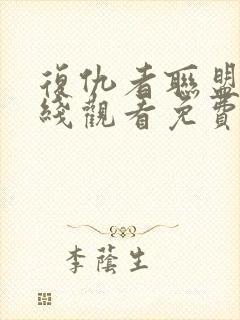 復仇者聯盟
綫觀看免費
李蔭生